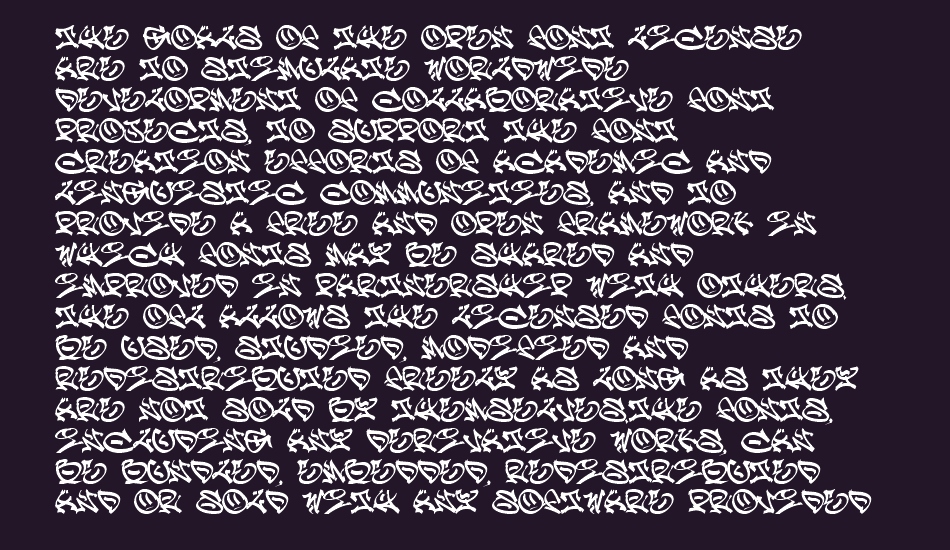 THE GOALS OF THE OPEN FONT LICENSE
ARE TO STIMULATE WORLDWIDE
DEVELOPMENT OF COLLABORATIVE FONT
PROJECTS, TO SUPPORT THE FONT
CREATION EFFORTS OF ACADEMIC AND
LINGUISTIC COMMUNITIES, AND TO
PROVIDE A FREE AND OPEN FRAMEWORK IN
WHICH FONTS MAY BE SHARED AND
IMPROVED IN PARTNERSHIP WITH OTHERS.
THE OFL ALLOWS THE LICENSED FONTS TO
BE USED, STUDIED, MODIFIED AND
REDISTRIBUTED FREELY AS LONG AS THEY
ARE NOT SOLD BY THEMSELVES.THE FONTS,
INCLUDING ANY DERIVATIVE WORKS, CAN
BE BUNDLED, EMBEDDED, REDISTRIBUTED
AND OR SOLD WITH ANY SOFTWARE PROVIDED